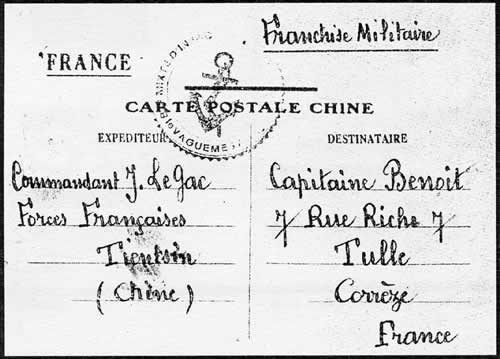 Franchise Militaire
FRANCE
CARTE POSTALE CHINE
EXPEDITEUR
Commandant J. Le Gac
Forces Françaises
Tientsin
(Chine)
DESTINATAIRE
Capitaine Benoit
7 Rue Riche 7
Tulle
Corrèze
France